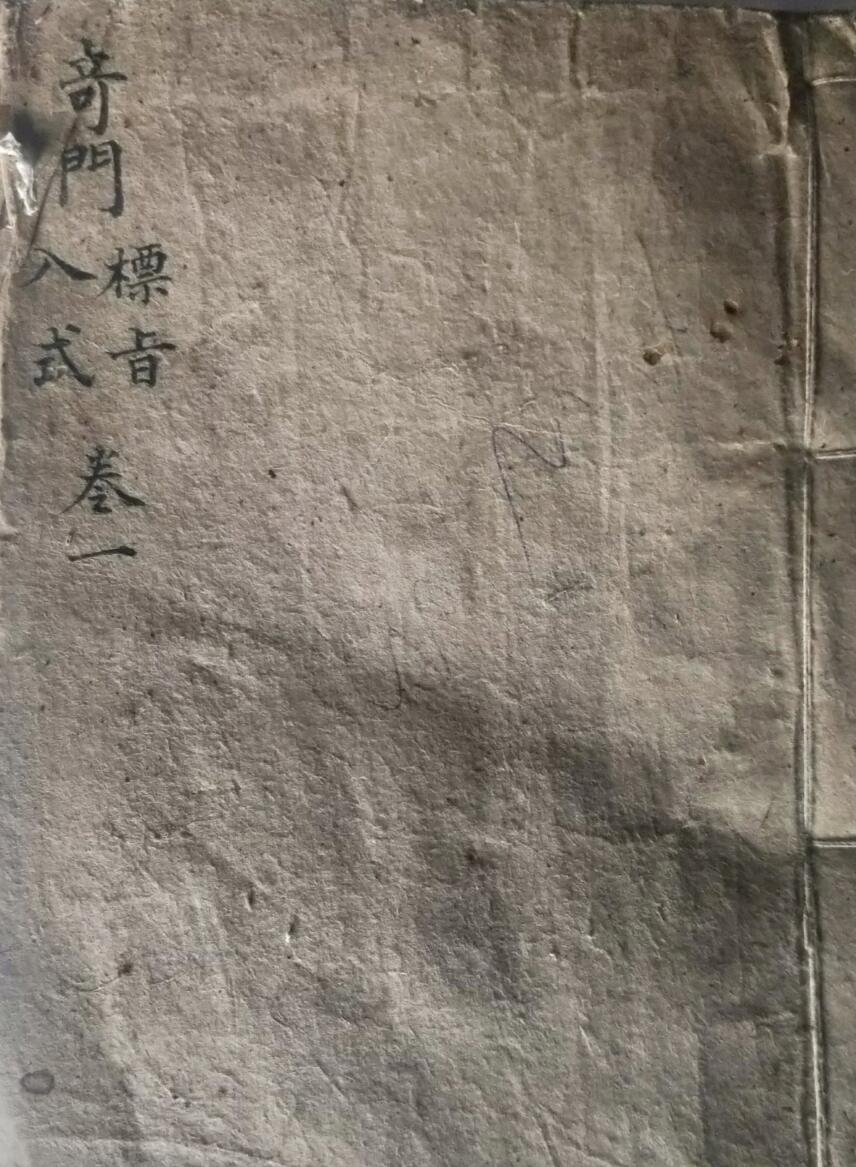 奇門
標旨
入式
卷一